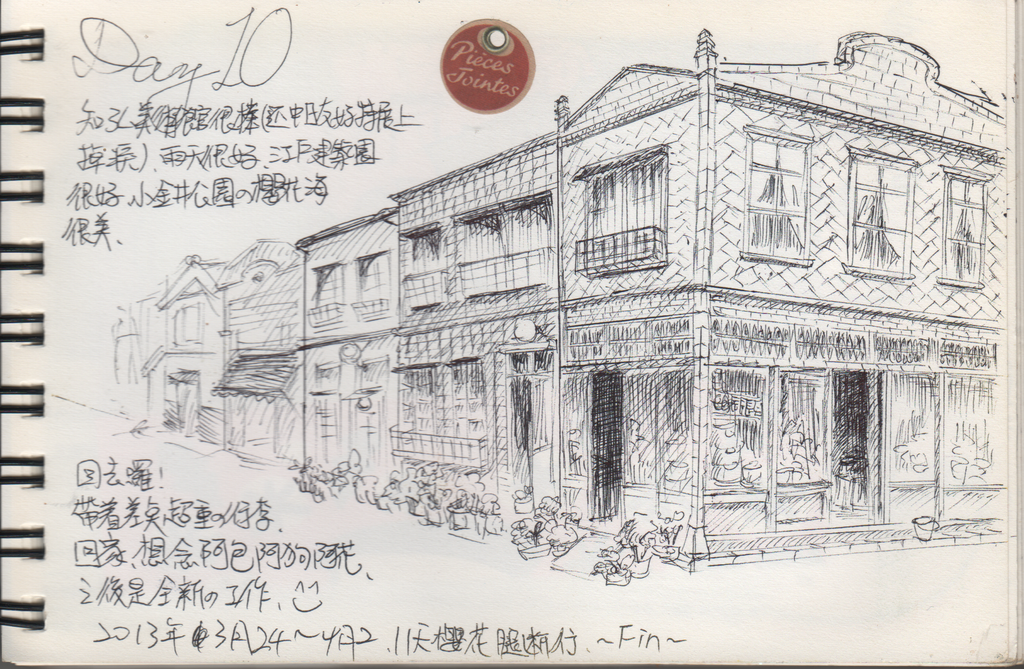 Day 10
Pièces
Jointes
知弘美術館很棒(还中段友好特展上
掉淚)、雨天很好、江戶建築園
很好、小金井公園の櫻花海
很美、
回去囉!
帶著差点超重の行李、
回家、想念阿包阿狗阿花、
之後是全新の工作、
2013年 3月24～4月2、11天櫻花腿断行、~Fin~